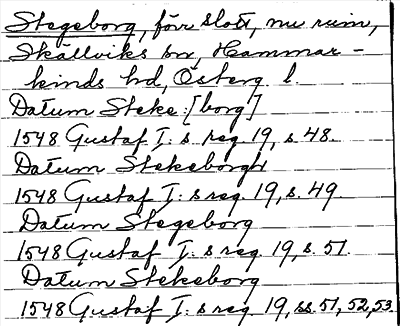 Stegeborg, förr slott, nu ruin,
Skällviks sn, Hammar-
kinds hd, Österg l.
Datum Steke: [borg]
1548 Gustaf I: s reg. 19, s. 48.
Datum Stekeborgh
1548 Gustaf I: s reg. 19, s. 49.
Datum Stegeborg
1548 Gustaf I: s reg. 19, s. 51.
Datum Stekeborg
1548 Gustaf I: s reg. 19, ss. 51, 52, 53.